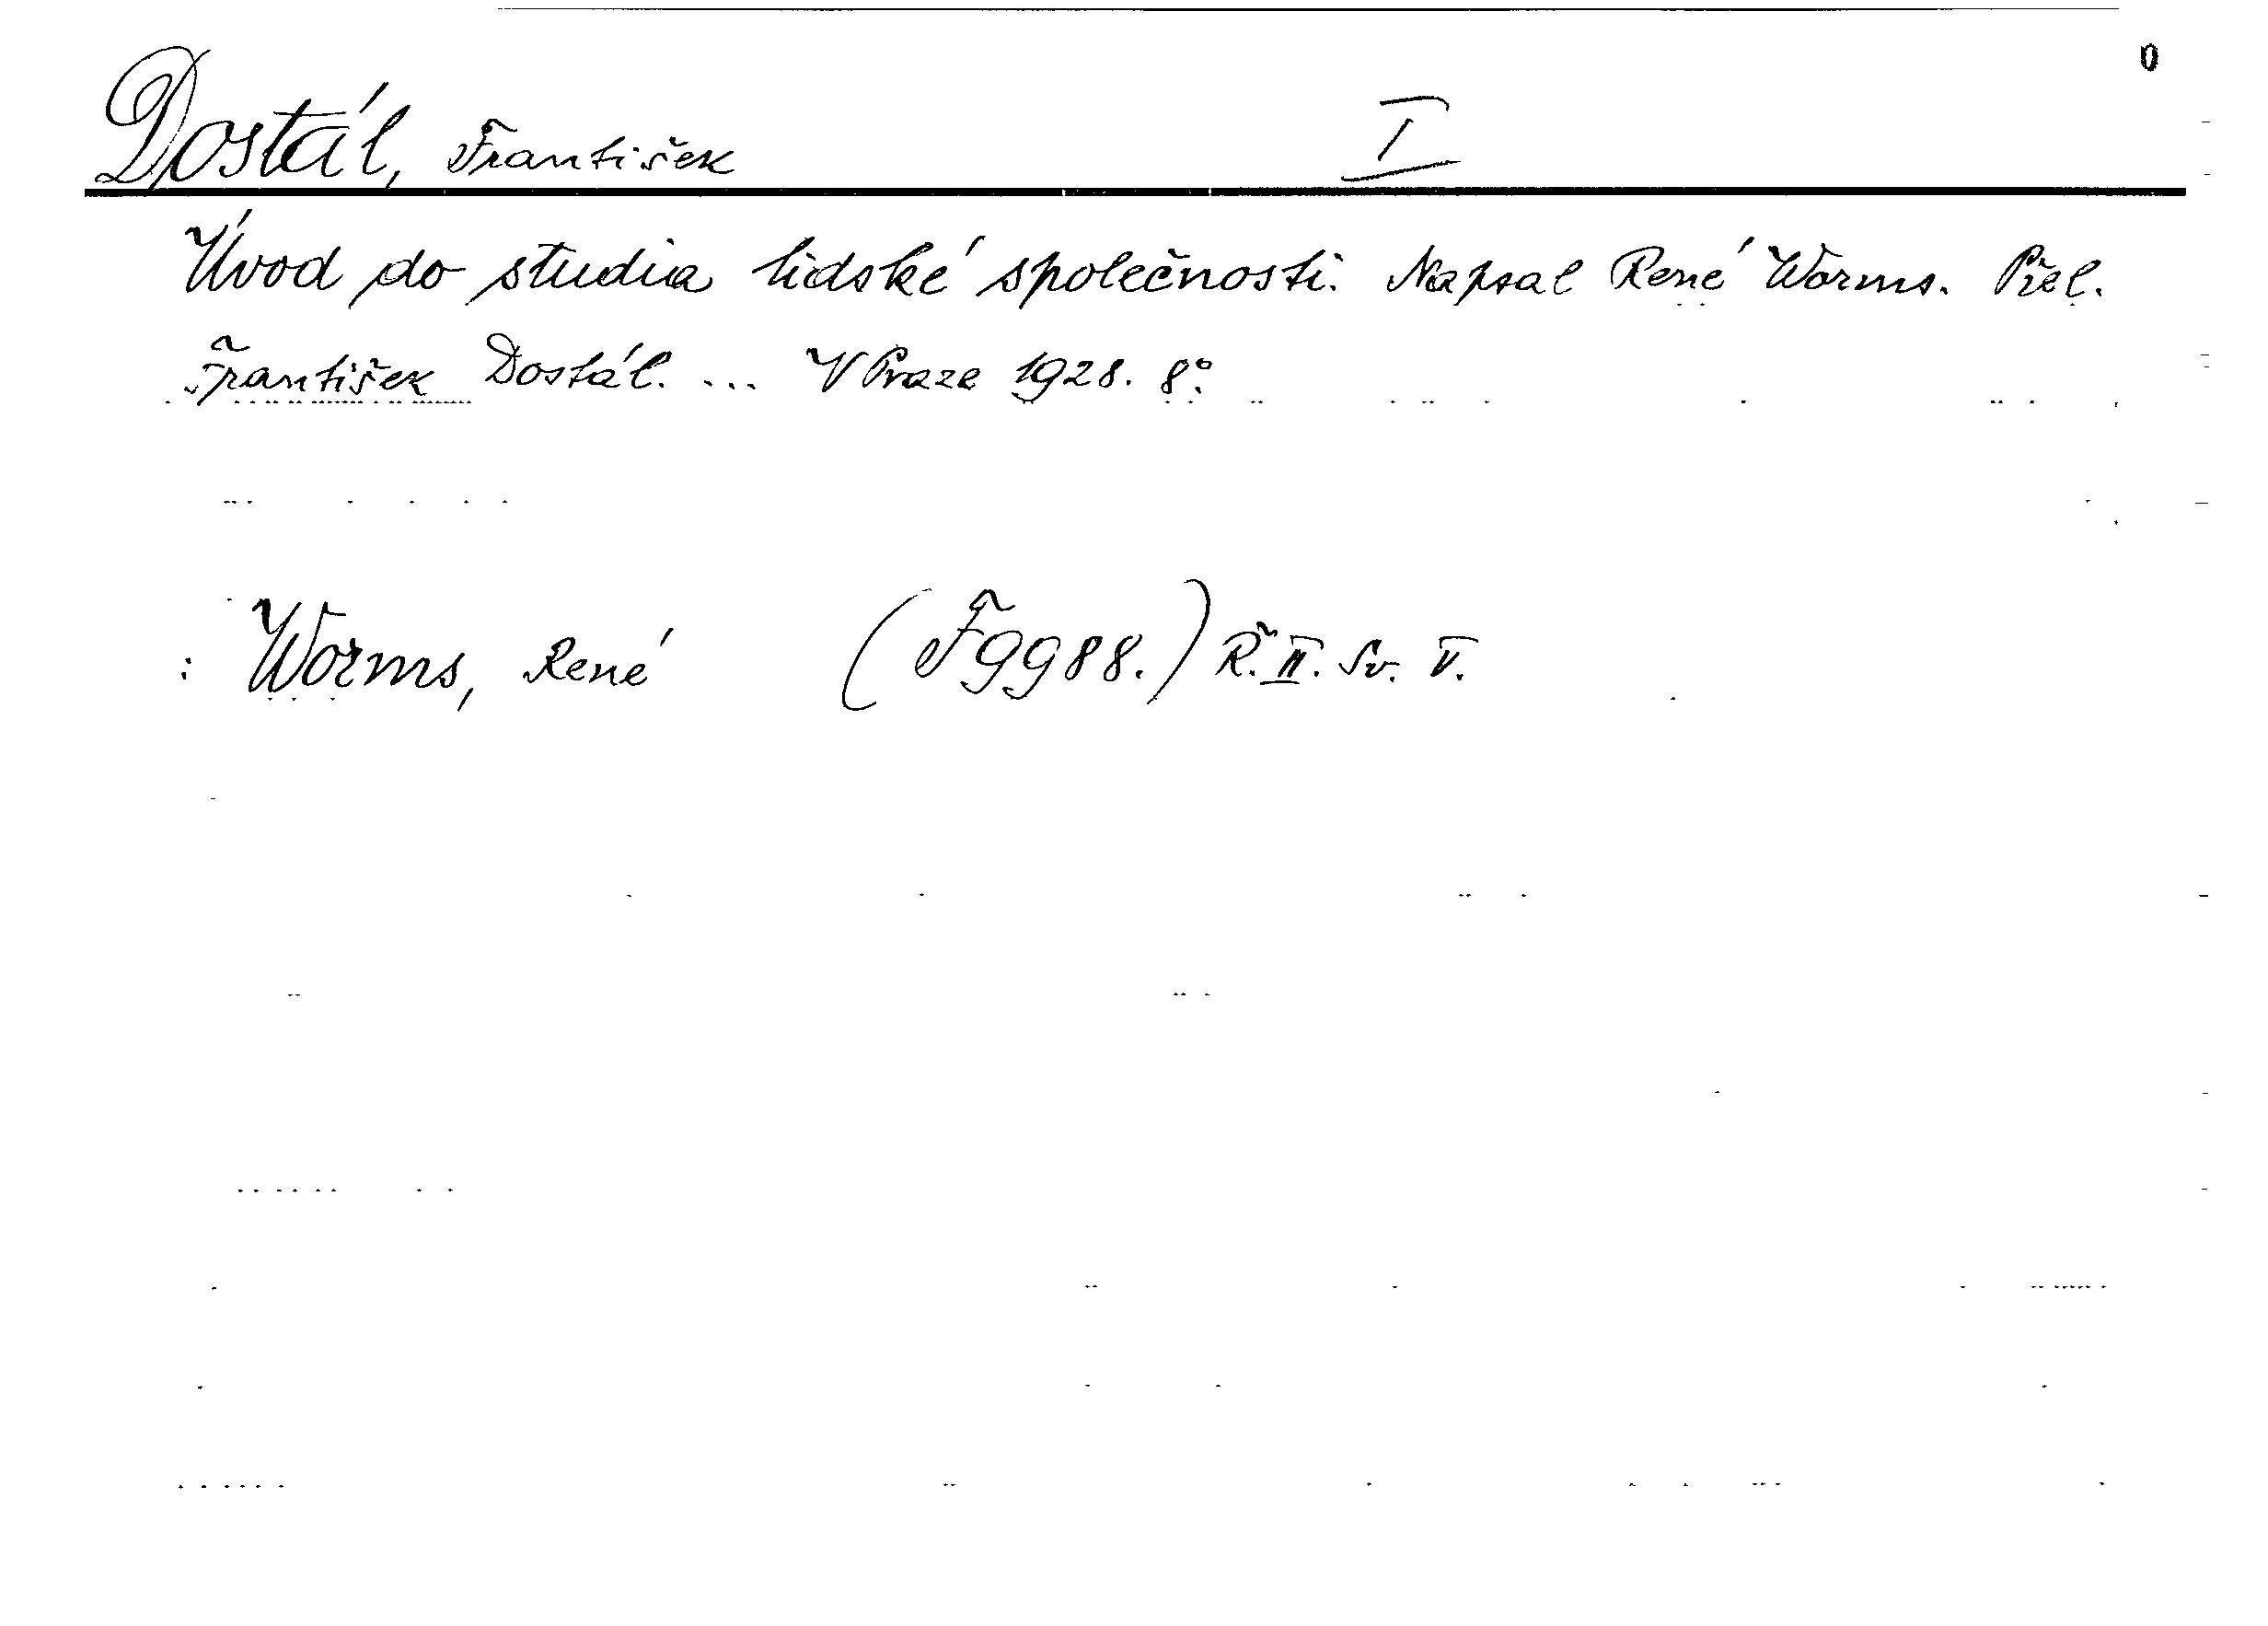 Dostál, František I
Úvod do studia lidské společnosti. Napsal René Worms. Přel.
František Dostál. ... V Praze 1928. 8°.
: Worms, René (F 9988.) Ř. II. Sv. V.